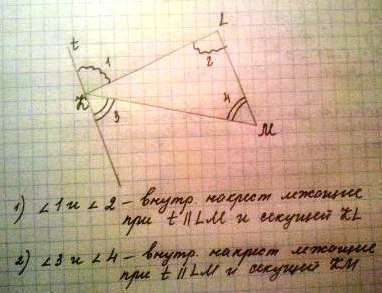 t
L
1
2
K
3
4
M
1) ∠1 и ∠2 – внутр. накрест лежащие
при t ∥ LM и секущей KL
2) ∠3 и ∠4 – внутр. накрест лежащие
при t ∥ LM и секущей KM